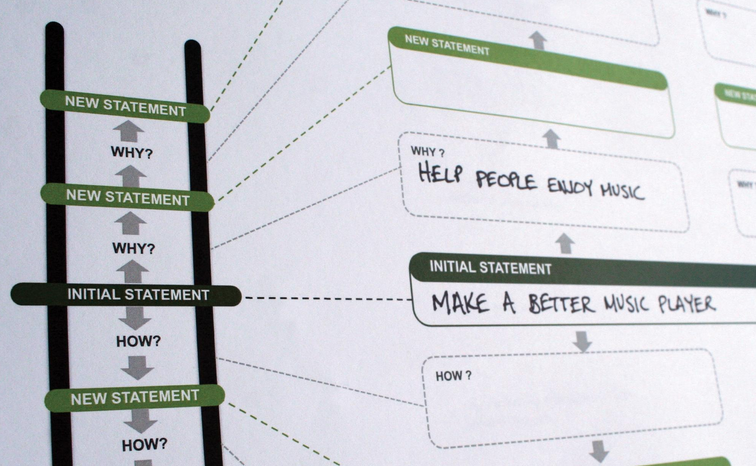 NEW STATEMENT
WHY?
NEW STATEMENT
WHY?
INITIAL STATEMENT
HOW?
NEW STATEMENT
HOW?
NEW STATEMENT
WHY ?
HELP PEOPLE ENJOY MUSIC
INITIAL STATEMENT
MAKE A BETTER MUSIC PLAYER
HOW ?
WHY ?
NEW STA
WHY ?